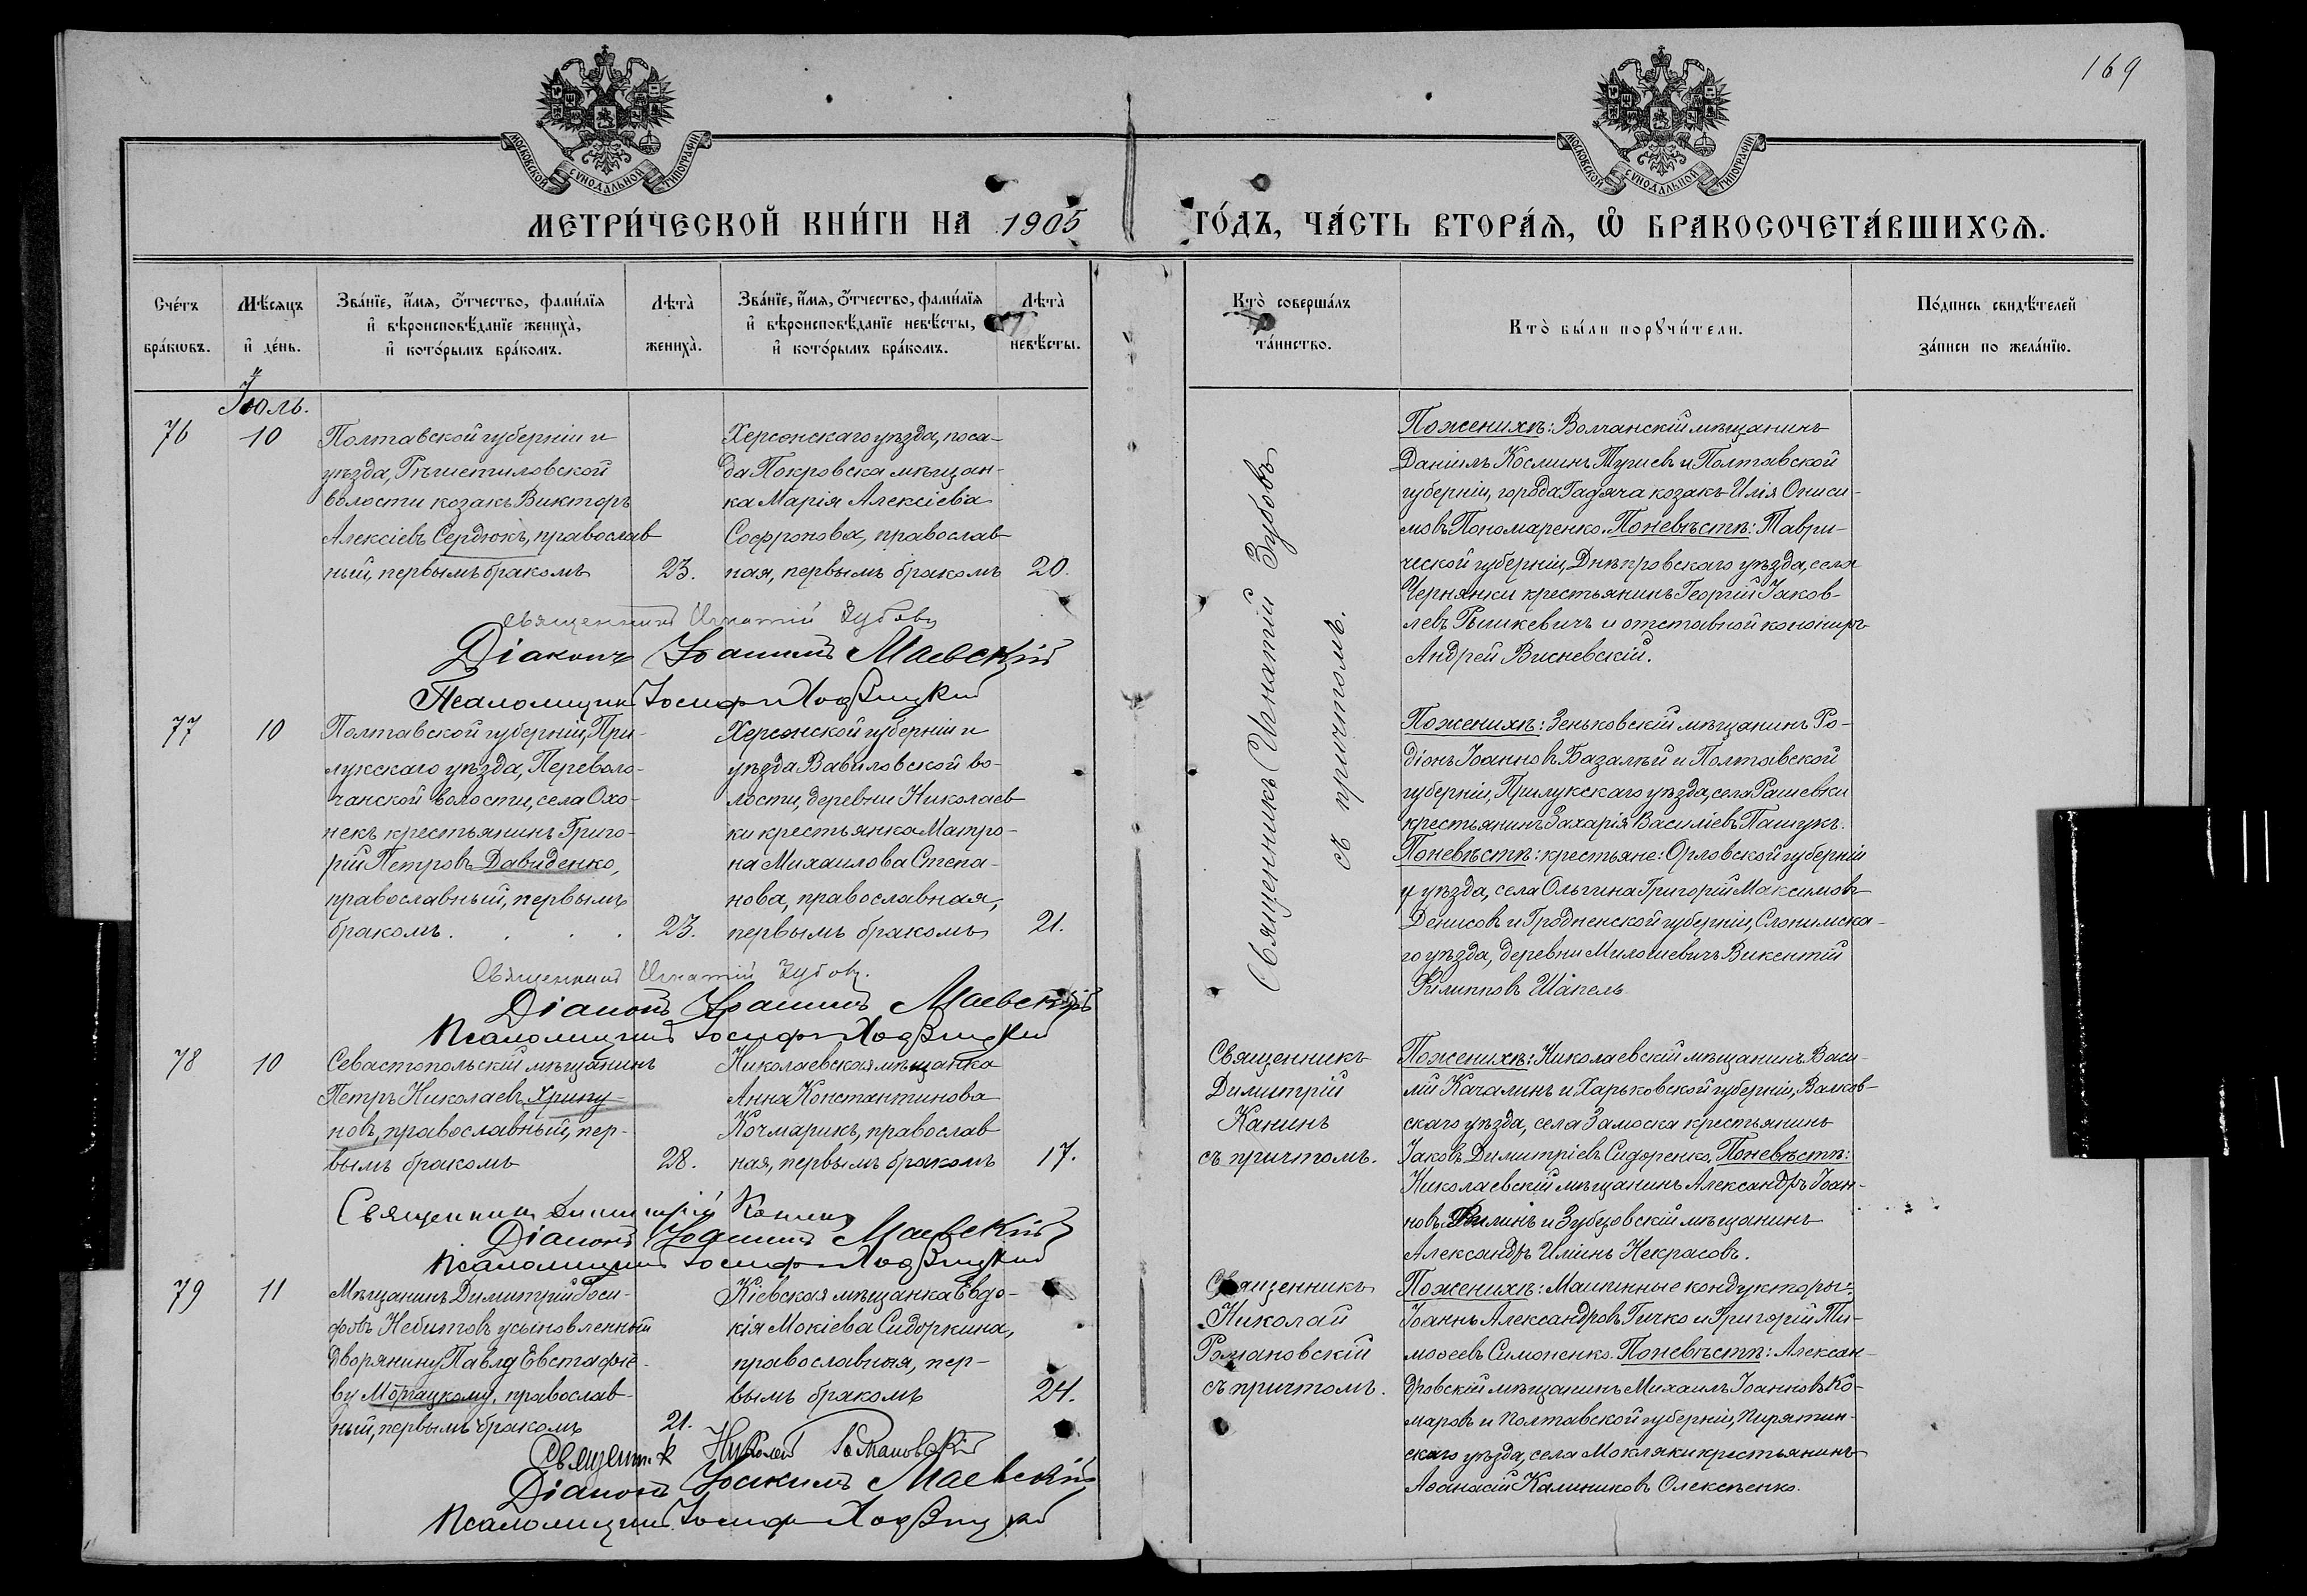 169
МОСКОВСКОЙ СѴНОДАЛЬНОЙ ТИПОГРАФІИ
МОСКОВСКОЙ СѴНОДАЛЬНОЙ ТИПОГРАФІИ
МЕТРИ́ЧЕСКОЙ КНИ́ГИ НА 1905 ГО́ДЪ, ЧА́СТЬ ВТОРА́Ѧ, Ѽ БРАКОСОЧЕТА́ВШИХСѦ.
Сче́тъ
бра́ковъ.
Мѣ́сяцъ
и де́нь.
Зва́нїе, и́мя, о́тчество, фами́лїя
и вѣроисповѣ́данїе жениха̀,
и кото́рымъ бра́комъ.
Лѣта̀
жениха̀.
Зва́нїе, и́мя, о́тчество, фами́лїя
и вѣроисповѣ́данїе невѣ́сты,
и кото́рымъ бра́комъ.
Лѣта̀
невѣ́сты.
Кто̀ соверша́лъ
та́инство.
Кто̀ бы́ли порꙋчи́тели.
По́дпись свидѣ́телей
за́писи по жела́нїю.
Іюль.
76
10
Полтавской губерніи и
уѣзда, Рѣшетиловской
волости козакъ Викторъ
Алексіевъ Сердюкъ, православ
ный, первымъ бракомъ
23.
Херсонскаго уѣзда, поса-
да Покровска мѣщан-
ка Марія Алексіева
Софронова, православ-
ная, первымъ бракомъ
20.
Священникъ Игнатій Зубовъ
съ причтомъ.
Пожених​ѣ: Волчанскій мѣщанинъ
Даніилъ Косминъ Туриевъ и Полтавской
губерніи, города Гадяча козакъ Илія Ониси-
мовъ Пономаренко. Поневѣстѣ: Таври-
ческой губерніи, Днѣпровскаго уѣзда, села
Чернянки крестьянинъ Георгій Іаков-
левъ Рышкевичъ и отставной конониръ
Андрей Висневскій.
Священникъ Игнатій Зубовъ
Діаконъ Іоакимъ Маевскій
Псаломщикъ Іосифъ
77
10
Полтавской губерніи, При-
лукскаго уѣзда, Переволо-
чанской волости, села Охо-
некъ крестьянинъ Григо-
рій Петровъ Давиденко,
православный, первымъ
бракомъ . . . .
23.
Херсонской губерніи и
уѣзда Вавиловской во-
лости, деревни Николаев-
ки крестьянка Матро-
на Михаилова Степа-
нова, православная,
первымъ бракомъ
21.
Поженихѣ: Зеньковскій мѣщанинъ Ро-
діонъ Іоанновъ Базалѣй и Полтавской
губерніи, Прилукскаго уѣзда, села Рашевки
крестьянинъ Захарія Василіевъ Пащукъ.
Поневѣстѣ: крестьяне: Орловской губерніи
и уѣзда, села Ольгина Григорій Максимовъ
Денисовъ и Гродненской губерніи, Слонимска-
го уѣзда, деревни Милошевичъ Викентій
Филипповъ Шапель
Священникъ Игнатій Зубовъ.
Діаконъ Іоакимъ Маевскій
Псаломщикъ Іосифъ
78
10
Севастопольскій мѣщанинъ
Петръ Николаевъ Хрипу-
новъ, православный, пер-
вымъ бракомъ
28.
Николаевская мѣщанка
Анна Константинова
Кочмарикъ, православ
ная, первымъ бракомъ
17.
Священникъ
Димитрій
Канинъ
съ причтомъ.
Поженихѣ: Николаевскій мѣщанинъ Васи-
лій Качалинъ и Харьковской губерніи, Валков-
скаго уѣзда, села Замоска крестьянинъ
Іаковъ Димитріевъ Сидоренко. Поневѣстѣ:
Николаевскій мѣщанинъ Александръ Іоан-
новъ Филинъ и Зубцовскій мѣщанинъ
Александръ Илiинъ Некрасовъ.
Священникъ Димитрій Канинъ
Діаконъ Іоакимъ Маевскій
Псаломщикъ Іосифъ
79
11
Мѣщанинъ Димитрій Іоси-
фовъ Небытовъ усыновленный
дворянину Павлу Евстафіе-
ву Моргацкому, православ-
ный, первымъ бракомъ
21.
Кіевская мѣщанка Евдо-
кія Мокіева Сидоркина,
православная, пер-
вымъ бракомъ
24.
Священникъ
Николай
Романовскій
съ причтомъ.
Поженихѣ: Машинные кондукторы:
Іоаннъ Александровъ Гичко и Григорій Ти-
моѳеевъ Симоненко. Поневѣстѣ: Алексан-
дровскій мѣщанинъ Михаилъ Іоанновъ Ко-
маровъ и Полтавской губерніи, Пирятин-
скаго уѣзда, села Мокляки крестьянинъ
Аѳанасій Калиниковъ Олексѣенко.
Священник Николай Романовскій
Діаконъ Іоакимъ Маевскій
Псаломщикъ Іосифъ